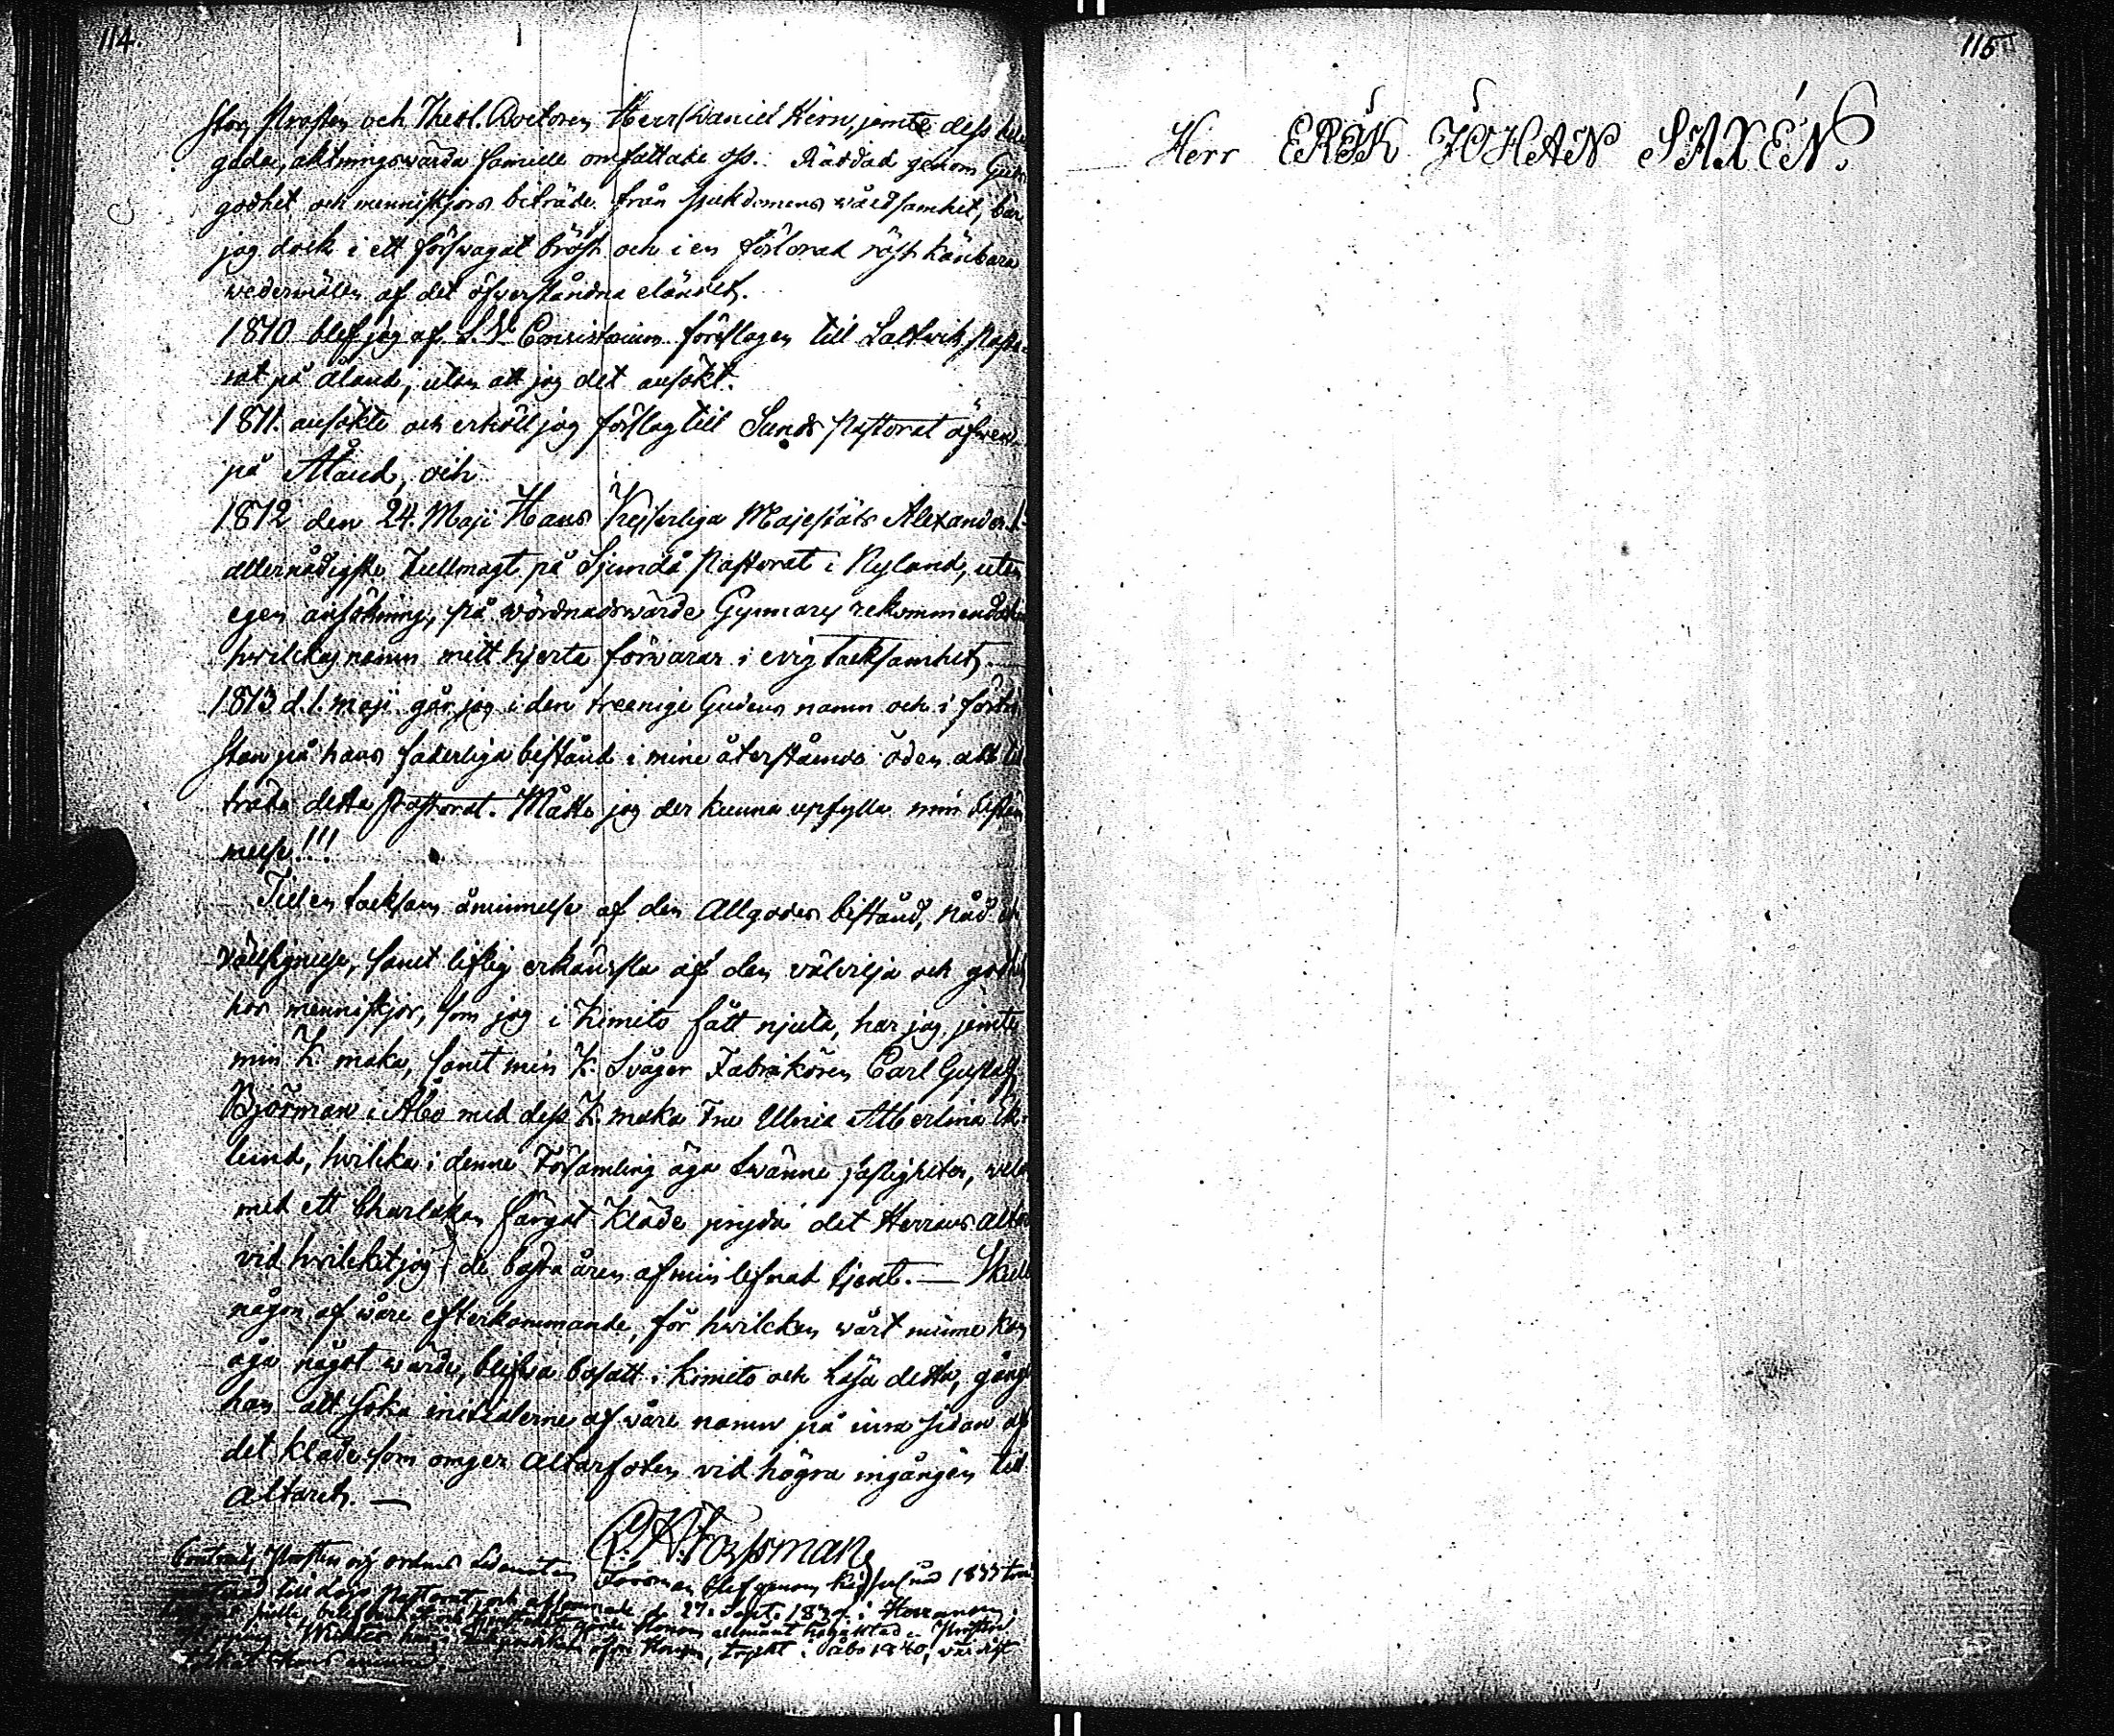 114.
Prosten och Theol. Doctoren Herr Daniel Hirn, jemte dess
goda, aktningswärda familie omfattade oss. Räddad genom Guds
godhet och menniskjors biträde från sjukdomens wåldsamhet, bär
jag dock i ett förswagat bröst och i en förlorad röst känbara
wedermälen af det öfwerståndna eländet.
1810 blef jag af L. V. Consistorium föreslagen till Saltwik Pasto-
rat på Åland, utan att jag det ansökt.
1811. ansökte och erhöll jag förslag till Sunds Pastorat äfwen
på Åland, och
1812 den 24. Maji Hans Kejserliga Majestäts Alexander I
allernådigste Fullmagt på Sjundå Pastorat i Nyland, utan
egen ansökning, på wördnadswärde Gynnares rekommendation
hwilckas namn mitt hjerta förwarar i evig tacksamhet.
1813 d. 1. maji går jag i den treenige Gudens namn och i förtrö-
stan på hans faderliga bistånd i mine återstående öden att till
träda detta Pastorat. Måtte jag der kunna upfylla min bestäm
melse!!!
Till en tacksam åminnelse af den Allgodes bistånd, nåd och
välsignelse, samt liflig erkänsla af den välvilja och godhet
hos menniskjor, som jag i Kimito fått njuta, har jag jemte
min K. maka, samt min K. Svåger Fabrikören Carl Gustaf
Björman i Åbo med dess K. maka Fru Ulrica Albertina Ek-
lund, hvilcka i denne Församling äga twänne fastigheter, velat
med ett Charlakan färgat Kläde pryda det Herrans Altare
vid hvilcket jag de bästa åren af min lefnad tjent. — Skulle
någon af wåre efterkommande, för hwilcken wårt minne kan
äga något wärde, blifwa bosatt i Kimito och läsa detta, gånge
han att söka initialerne af våre namn på inra sidan af
det kläde som omger Altarfoten vid högra ingången till
Altaret. —
C. H. Forssman
Contracts Prosten och ordens Ledamoten Forsman blef genom Kejserl. nåd 1833
till Lojo Pastorat, och afsomnade d. 27. Sept. 1839. i Herranom.
Honom allmänt högaktad. Prosten
öfver Honom, tryckt i Åbo 1840,
115
Herr ERIK JOHAN SAXÉN.